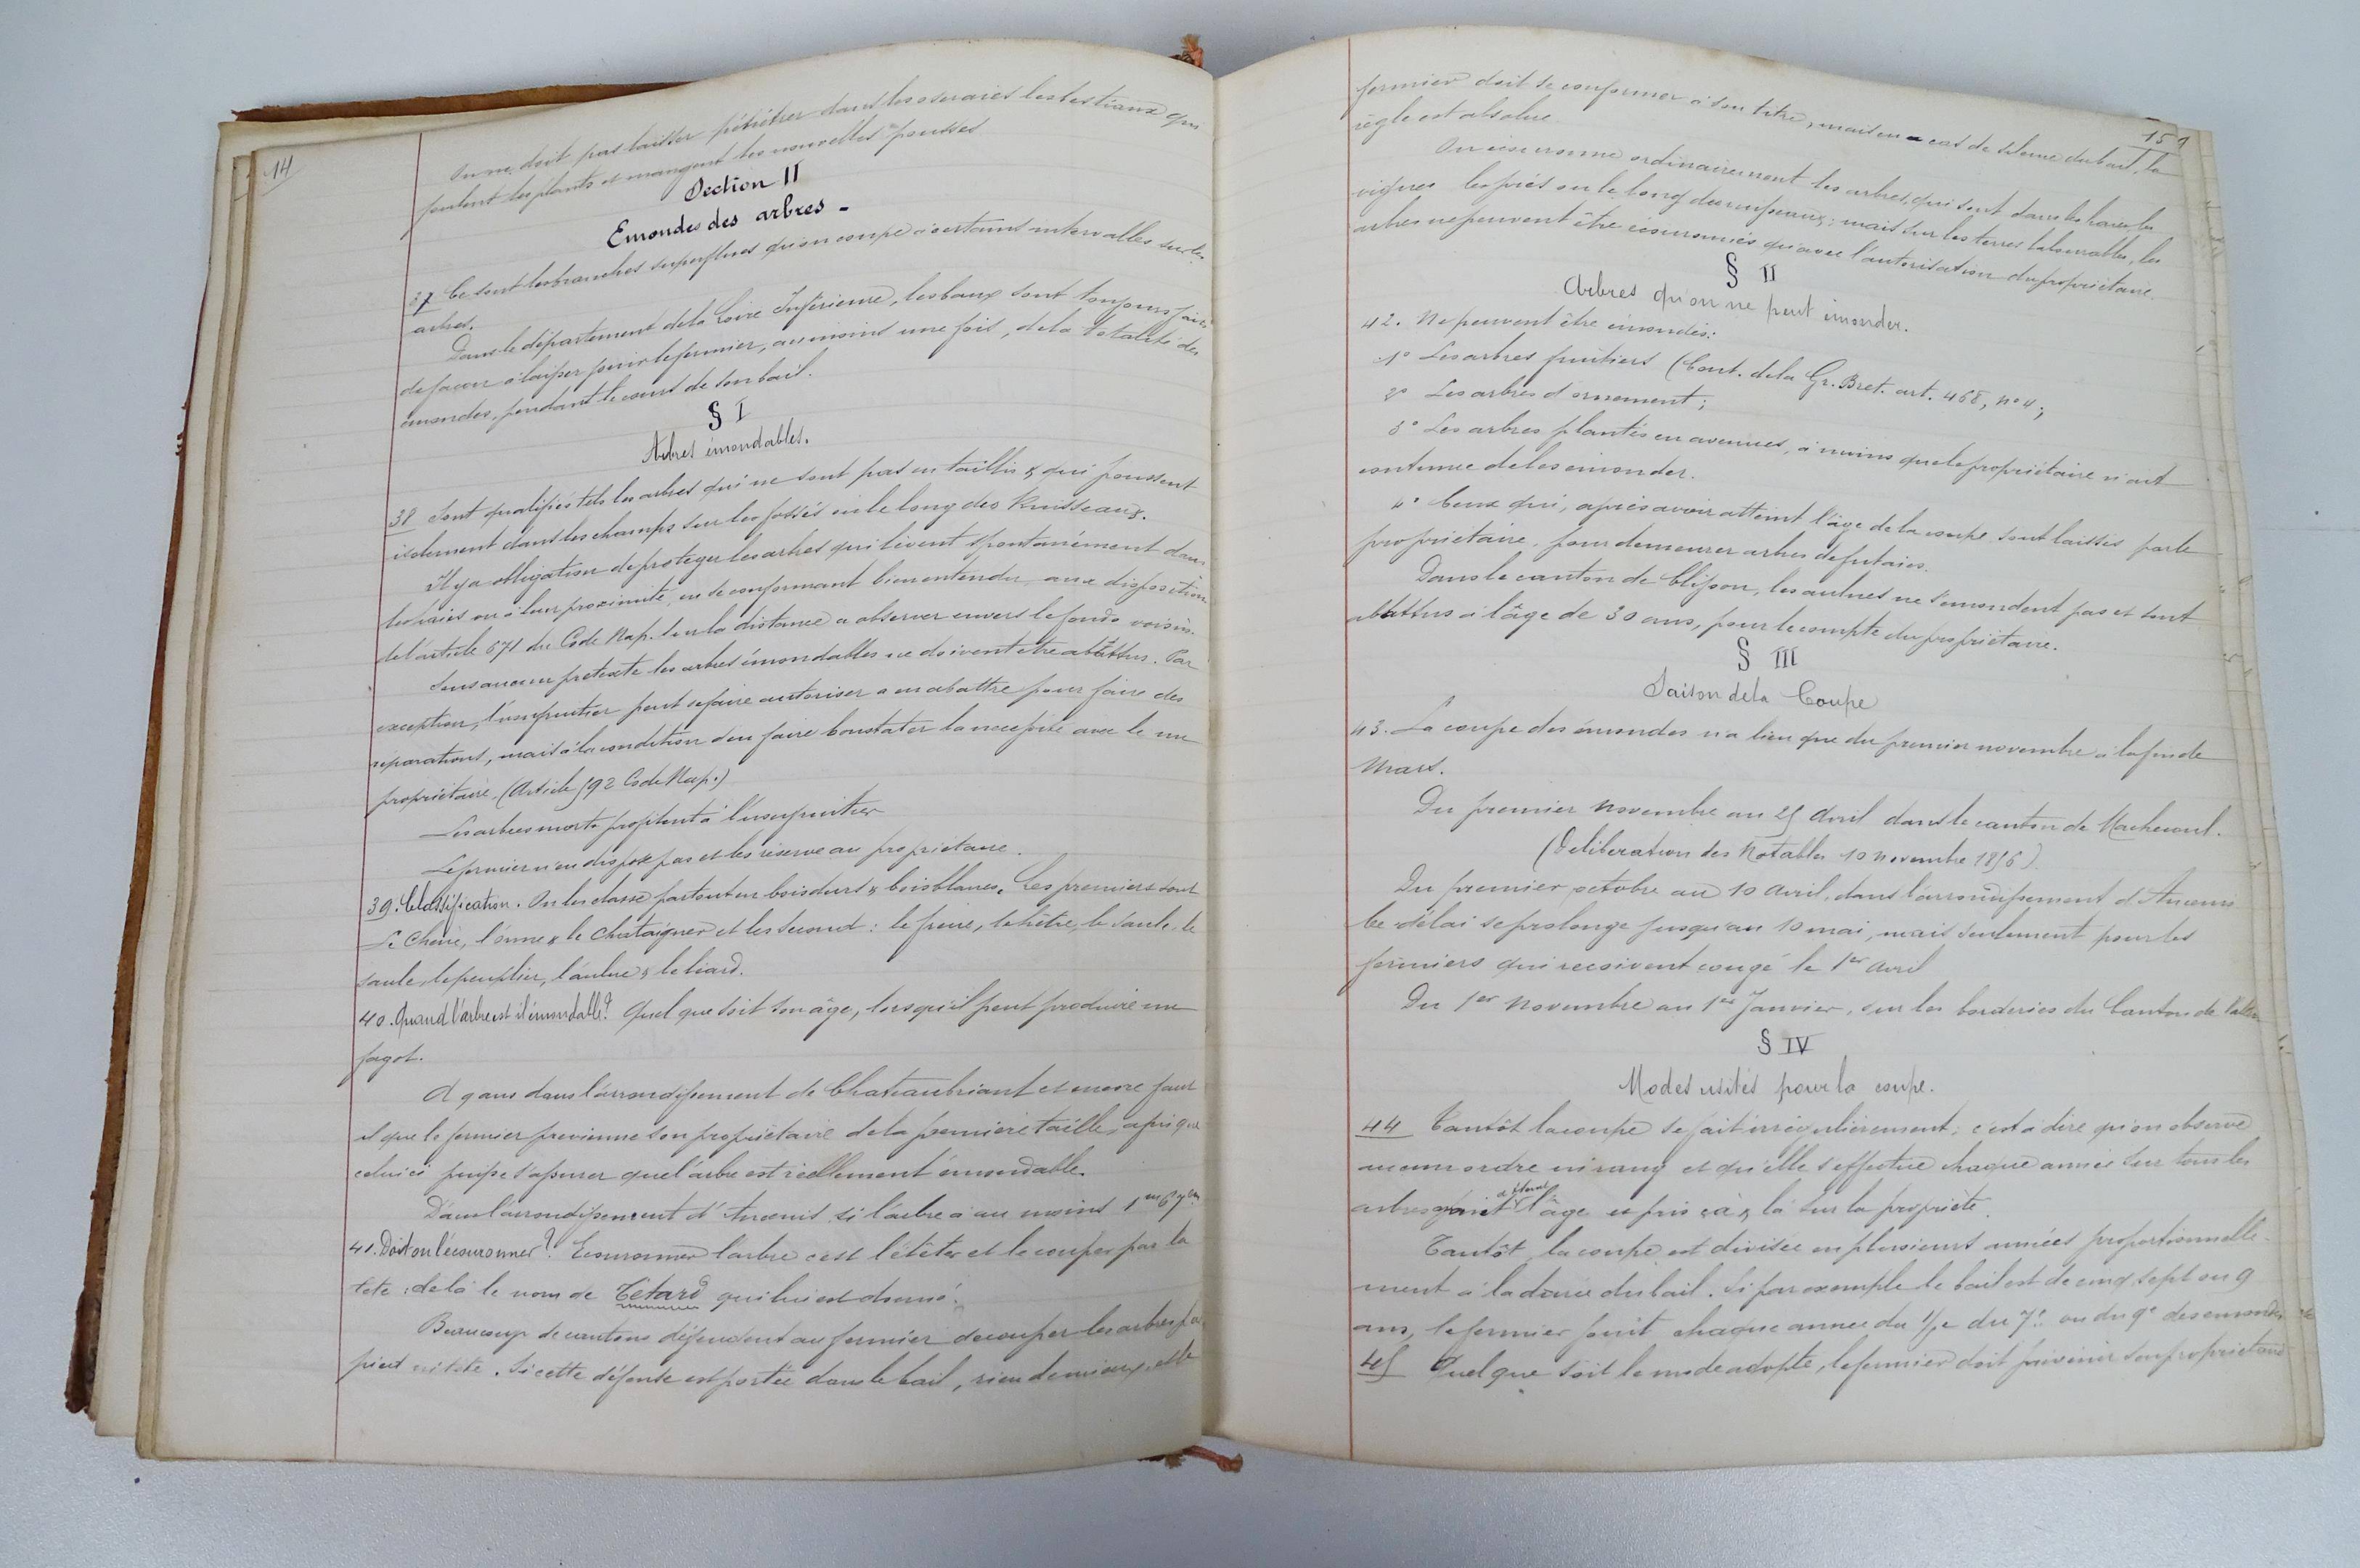 14
On ne doit pas laisser pénétrer dans les oseraies les bestiaux qui
foulent les plants et mangent les nouvelles pousses
Section II
Emondes des arbres -
37 Ce sont les branches superflues qu'on coupe à certains intervalles sur les
arbres.
Dans le département de la Loire Inférieure, les baux sont toujours faits
de façon à laisser jouir le fermier, au moins une fois, de la totalité des
émondes, pendant le cours de son bail.
§ I
Arbres émondables.
38 Sont qualifiés tels les arbres qui ne sont pas en taillis & qui poussent
isolement dans les champs sur les fossés ou le long des Ruisseaux.
Il y a obligation de protéger les arbres qui lèvent spontanément dans
les haies ou à leur proximité, en se conformant bien entendu aux disposition
de l'article 671 du Code Nap. sur la distance a observer envers le fonds voisin.
Sous aucun pretexte les arbres émondables ne doivent etre abattus. Par
exception, l'usufruitier peut se faire autoriser a en abattre pour faire des
réparations, mais à la condition d'en faire Constater la necessité avec le nu
propriétaire. (Article 592 Code Nap.)
Les arbres morts profitent à l'usufruitier
Le fermier n'en dispose pas et les réserve au propriétaire.
39. Classification. On les classe partout en bois durs & bois blancs. Les premiers sont
Le Chêne, l'orme & le Chataigner et les second : le frêne, le hêtre, le saule, le
saule, le peuplier, l'aulne & le liard.
40. Quand l'arbre est il émondable? Quel que soit son âge, lorsqu'il peut produire un
fagot.
A 9 ans dans l'arrondissement de Chateaubriant et encore faut
il que le fermier previenne son propriétaire de la première taille, afin que
celui ci puisse s'assurer que l'arbre est réellement émondable.
Dans l'arrondissement d'Ancenis si l'arbre a au moins 1m67cm
41. Doit on l'écouronner? Ecouronner l'arbre c'est l'étêter et le couper par la
tete : de là le nom de Têtard qui lui est donné.
Beaucoup de cantons défendent au fermier de couper les arbres par
pied ni tete. Si cette défense est portée dans le bail, rien de mieux, et le
151
fermier doit se conformer à son titre, mais en cas de silence du bail, la
règle est absolue.
On écouronne ordinairement les arbres, qui sont dans les haies les
vignes les prés ou le long des ruisseaux; mais sur les terres labourables, les
arbres ne peuvent être écouronnés qu'avec l'autorisation du propriétaire.
§ II
Arbres qu'on ne peut émonder.
42. Ne peuvent être émondés:
1° Les arbres fruitiers (Cout. de la Gr. Bret. art. 468, n° 4;
2° Les arbres d'ornement;
3° Les arbres plantés en avenues, à moins que le propriétaire n'ait
coutume de les émonder.
4° Ceux qui, après avoir atteint l'âge de la coupe sont laissés par le
propriétaire, pour demeurer arbres de futaies.
Dans le canton de Clisson, les aulnes ne s'émondent pas et sont
abattus à l'âge de 30 ans, pour le compte du propriétaire.
§ III
Saison de la Coupe
43. La coupe des émondes n'a lieu que du premier novembre à la fin de
Mars.
Du premier Novembre au 25 Avril dans le canton de Machecoul.
(Déliberation des Notables 10 novembre 1856).
Du premier octobre au 10 Avril, dans l'arrondissement d'Ancenis
Ce délai se prolonge jusqu'au 10 mai, mais seulement pour les
fermiers qui recoivent congé le 1er Avril
Du 1er Novembre au 1er Janvier, sur les borderies du Canton de Vallet
§ IV
Modes usités pour la coupe.
44 Tantôt la coupe se fait irrégulièrement; c'est à dire qu'on observe
aucun ordre ni rang et qu'elle s'effectue chaque année sur tous les
arbres ayant l'âge et pris çà & là sur la propriété.
Tantôt, la coupe est divisée en plusieurs années proportionnelle-
ment à la durée du bail. Si par exemple le bail est de cinq, sept ou 9
ans, le fermier jouit chaque annee du 1/5e du 7e ou du 9e des émondes
45 Quel que soit le mode adopté, le fermier doit prévenir son propriétaire